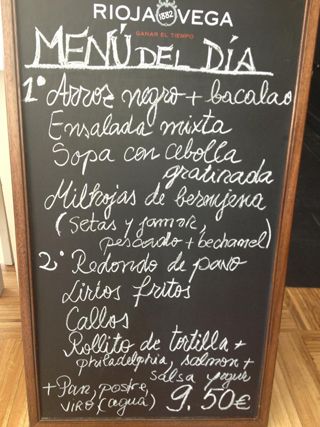 RIOJA VEGA
1882
GANAR EL TIEMPO
MENÚ DEL DÍA
1º Arroz negro + bacalao
Ensalada mixta
Sopa con cebolla
gratinada
Milhojas de berenjena
(Setas y jamón,
pescado + bechamel)
2º Redondo de pavo
Lirios fritos
Callos
Rollito de tortilla +
philadelphia, salmon +
salsa yogur
+ Pan, postre,
vino (agua) 9.50€